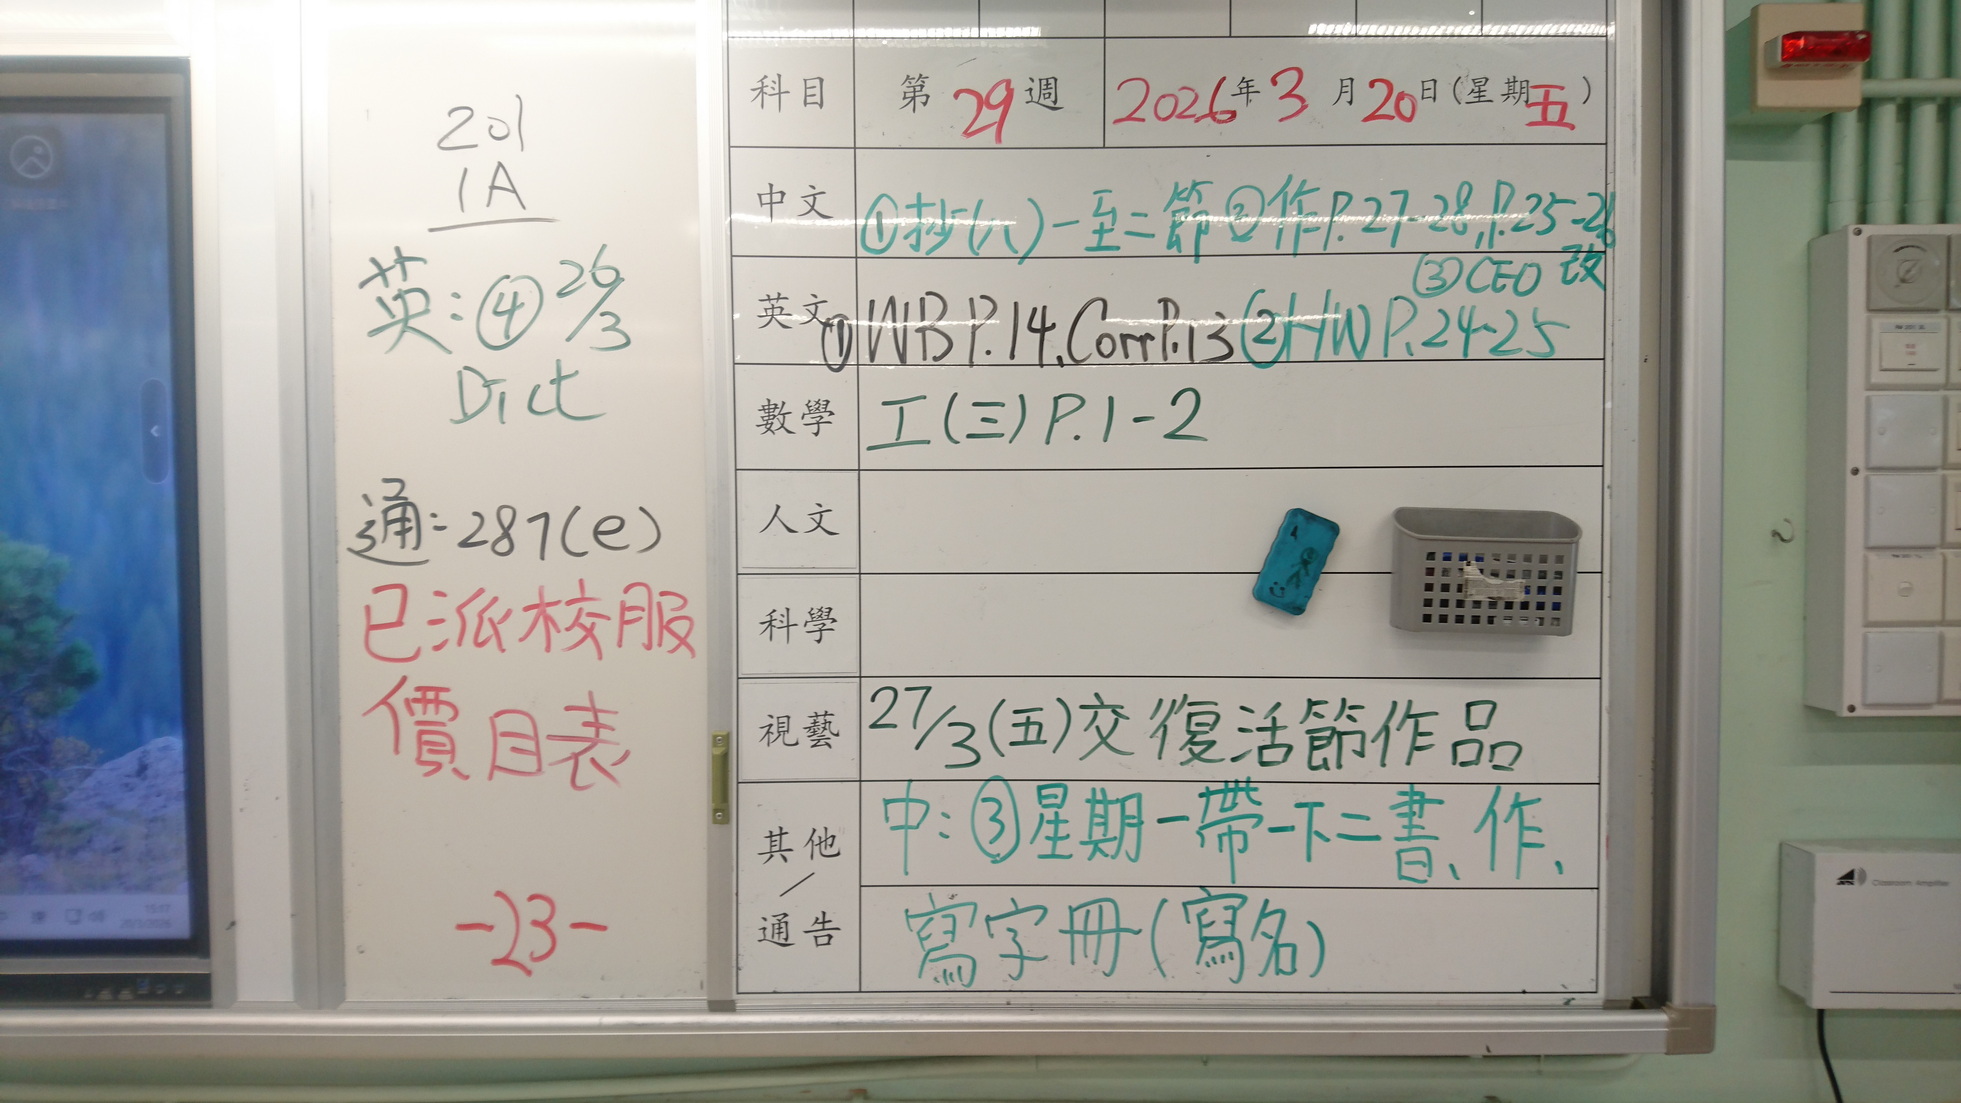 201
1A
英:④26/3
Dict
通:287(e)
已派校服
價目表
-23-
科目 第29週 2026年3月20日(星期五)
中文 ①抄(八)一至二節②作P.27-28,P.25-26改
英文 ①WB P.14, Corr P.13 ②HW P.24-25 ③CEO
數學 工(三)P.1-2
人文
科學
視藝 27/3(五)交復活節作品
其他/通告 中:③星期一帶一下二書、作、
寫字冊(寫名)
Classroom Amplifier